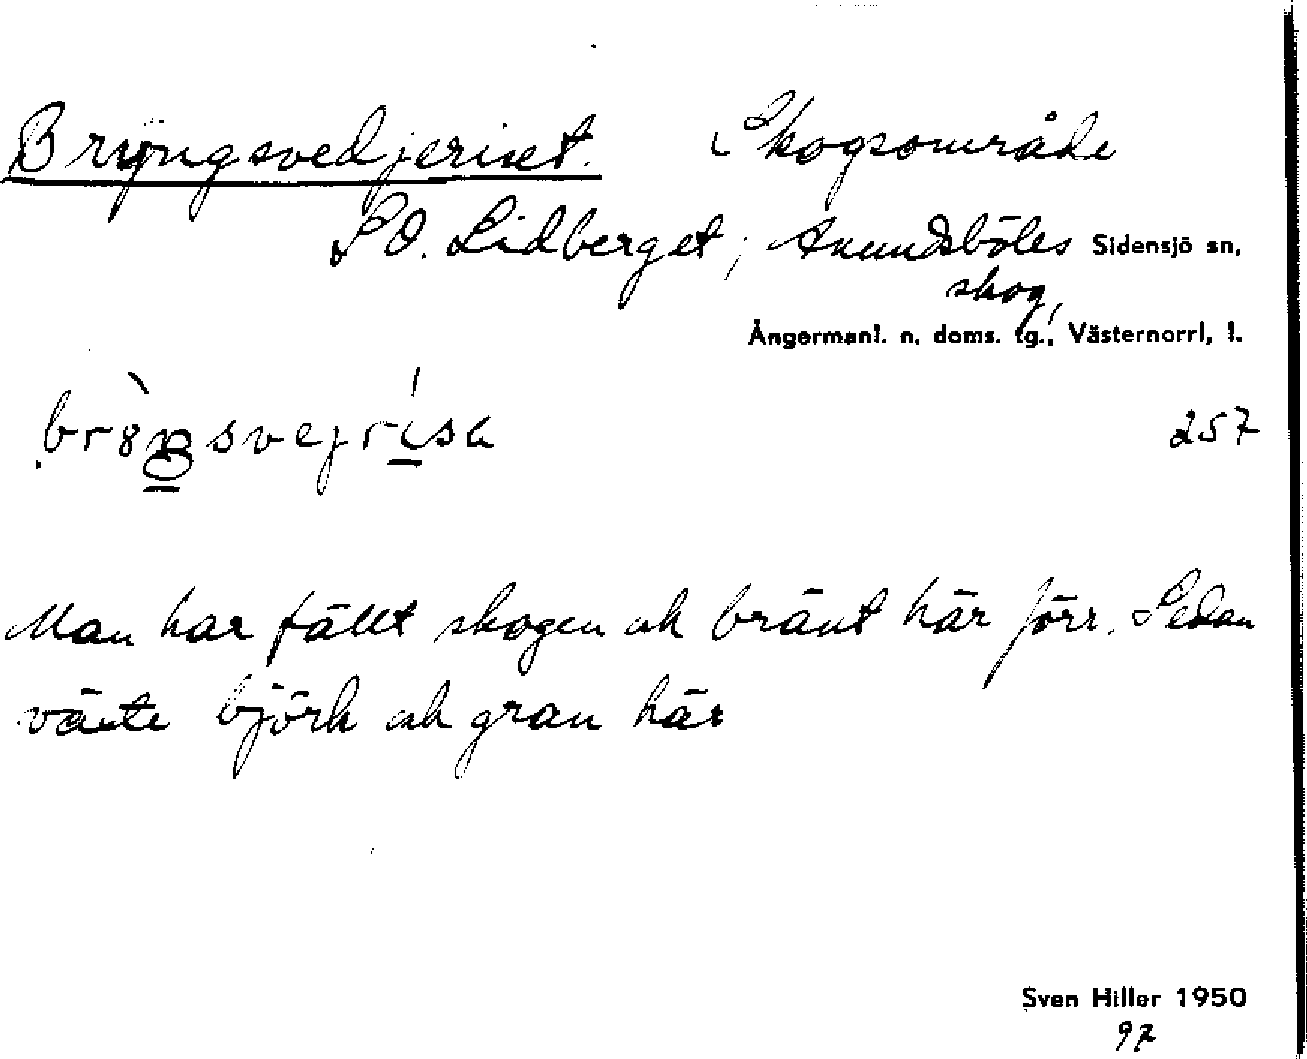 Bryngsvedjeriset. Skogsområde
SO. Lidberget, Anundsböles Sidensjö sn,
skog,
Ångermanl. n. doms. tg., Västernorrl. l.
257
Man har fällt skogen och bränt här förr. Sedan
växte björk och gran här
Sven Hiller 1950
97